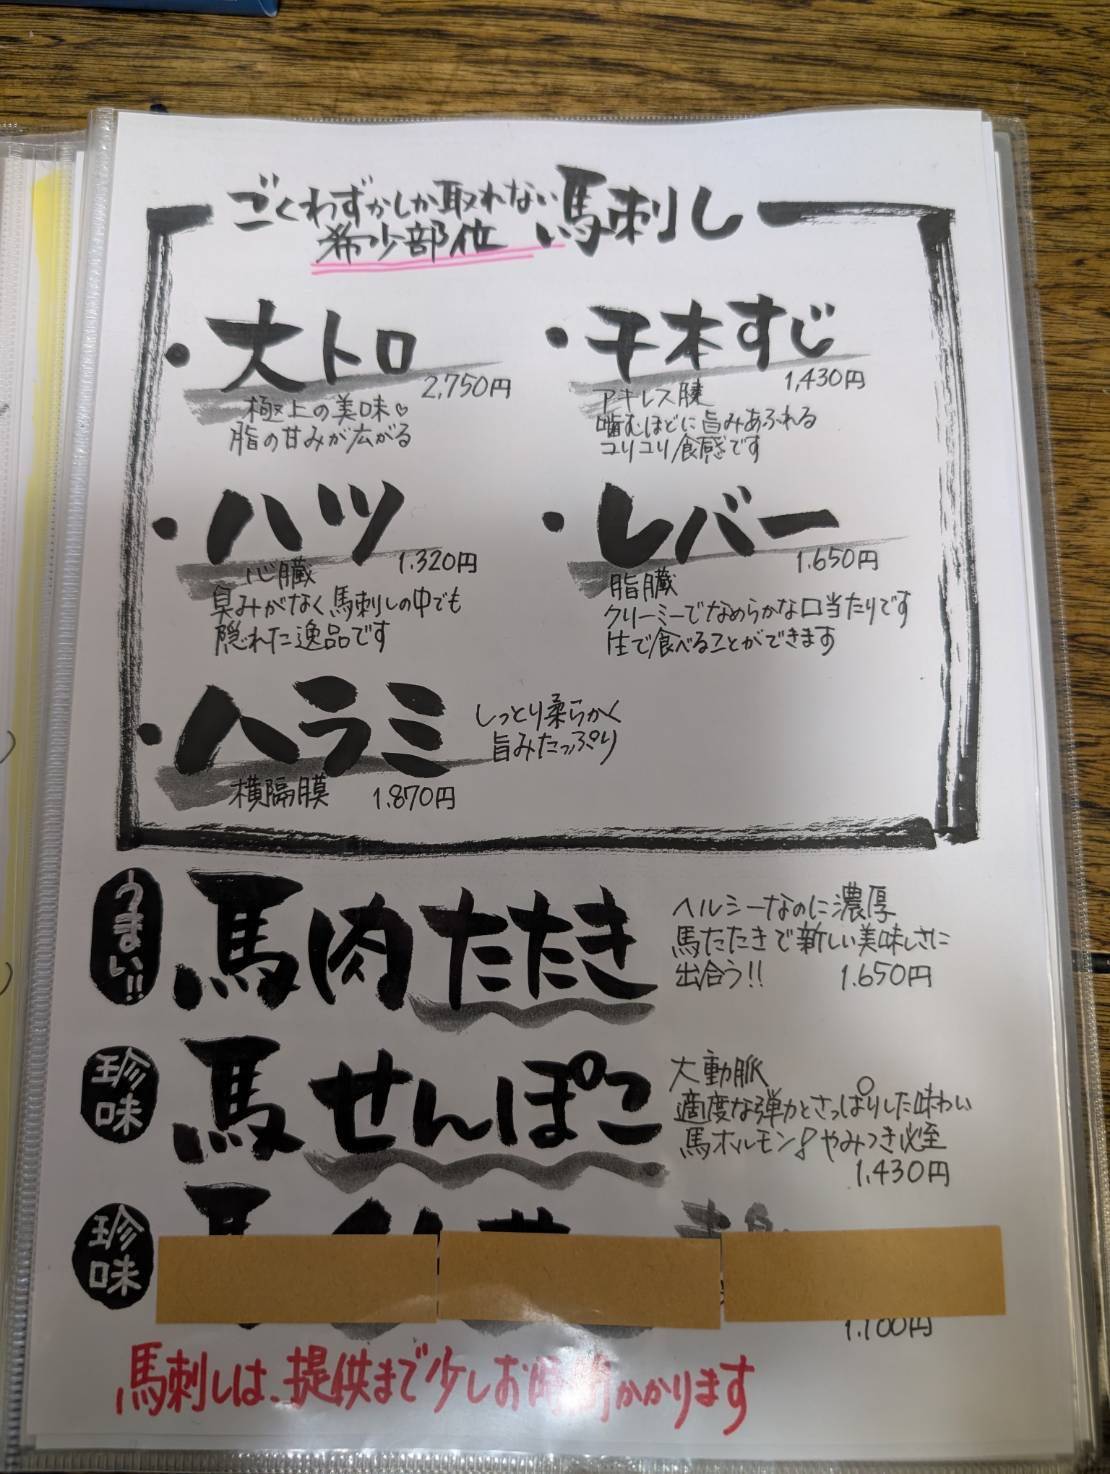 ごくわずかしか取れない
希少部位 馬刺し
・大トロ
2,750円
極上の美味♡
脂の甘みが広がる
・千本すじ
1,430円
アキレス腱
噛むほどに旨みあふれる
コリコリ食感です
・ハツ
1.320円
心臓
臭みがなく馬刺しの中でも
隠れた逸品です
・レバー
1.650円
脂臓
クリーミーでなめらかな口当たりです
生で食べることができます
・ハラミ
しっとり柔らかく
旨みたっぷり
横隔膜 1.870円
うまい!!
馬肉たたき
ヘルシーなのに濃厚
馬たたきで新しい美味しさに
出合う!! 1.650円
珍味
馬せんぽこ
大動脈
適度な弾力とさっぱりした味わい
馬ホルモン♪やみつき必至
1,430円
珍味
馬
1.100円
馬刺しは、提供まで少しお時間かかります